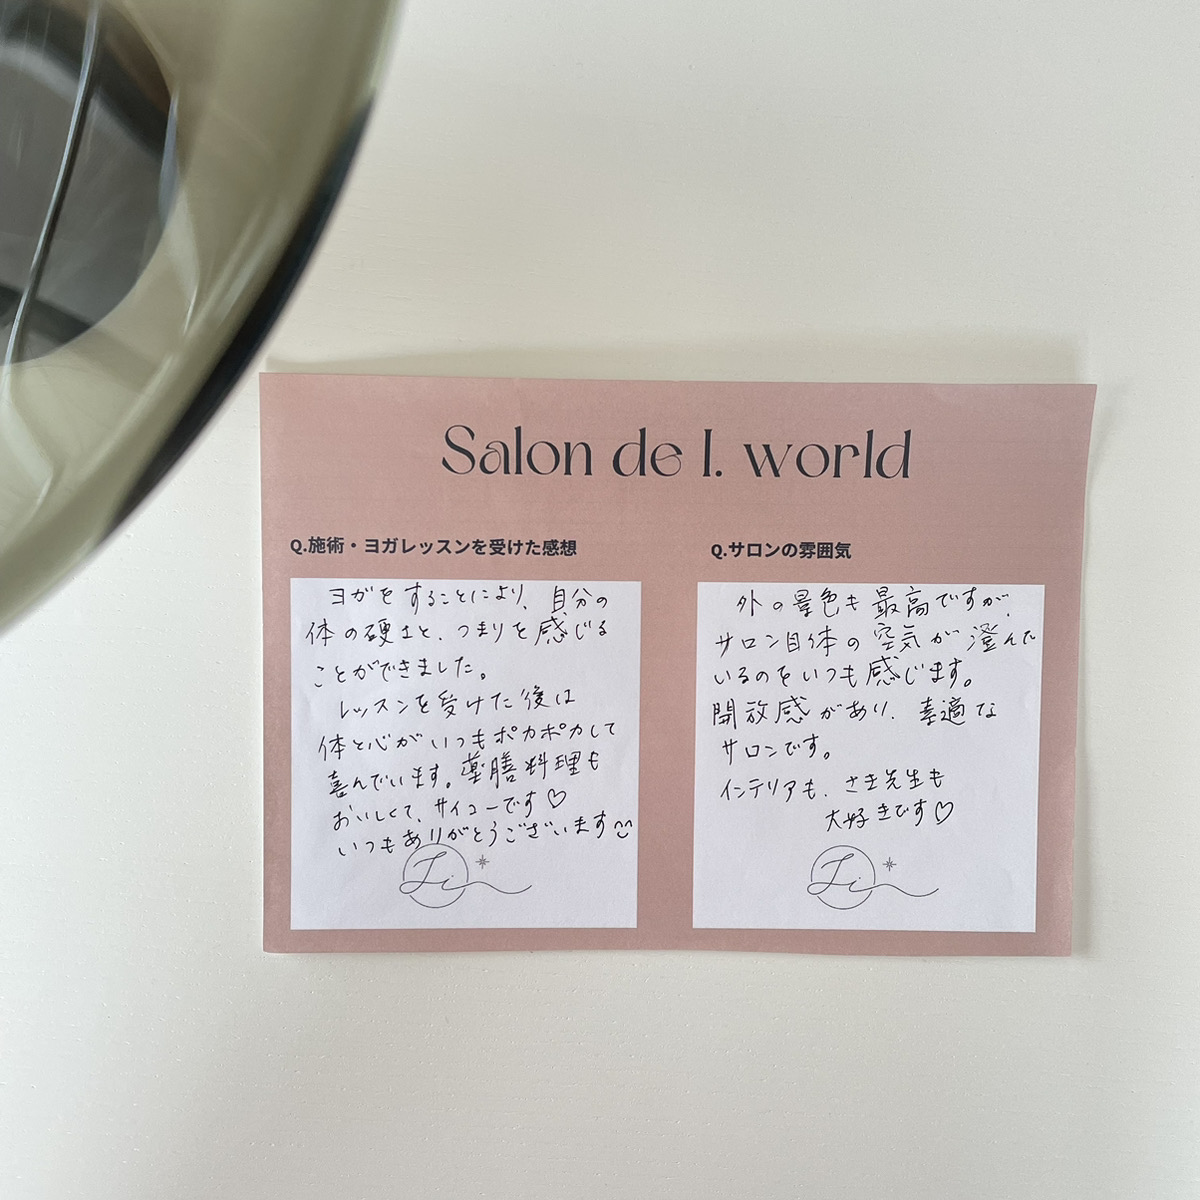 Salon de I. world
Q.施術・ヨガレッスンを受けた感想
ヨガをすることにより、自分の
体の硬さと、つまりを感じる
ことができました。
レッスンを受けた後は
体と心がいつもポカポカして
喜んでいます。薬膳料理も
おいしくて、サイコーです♡
いつもありがとうございます
Li
Q.サロンの雰囲気
外の景色も最高ですが、
サロン自体の空気が澄んで
いるのをいつも感じます。
開放感があり、素適な
サロンです。
インテリアも、さき先生も
大好きです♡
Li